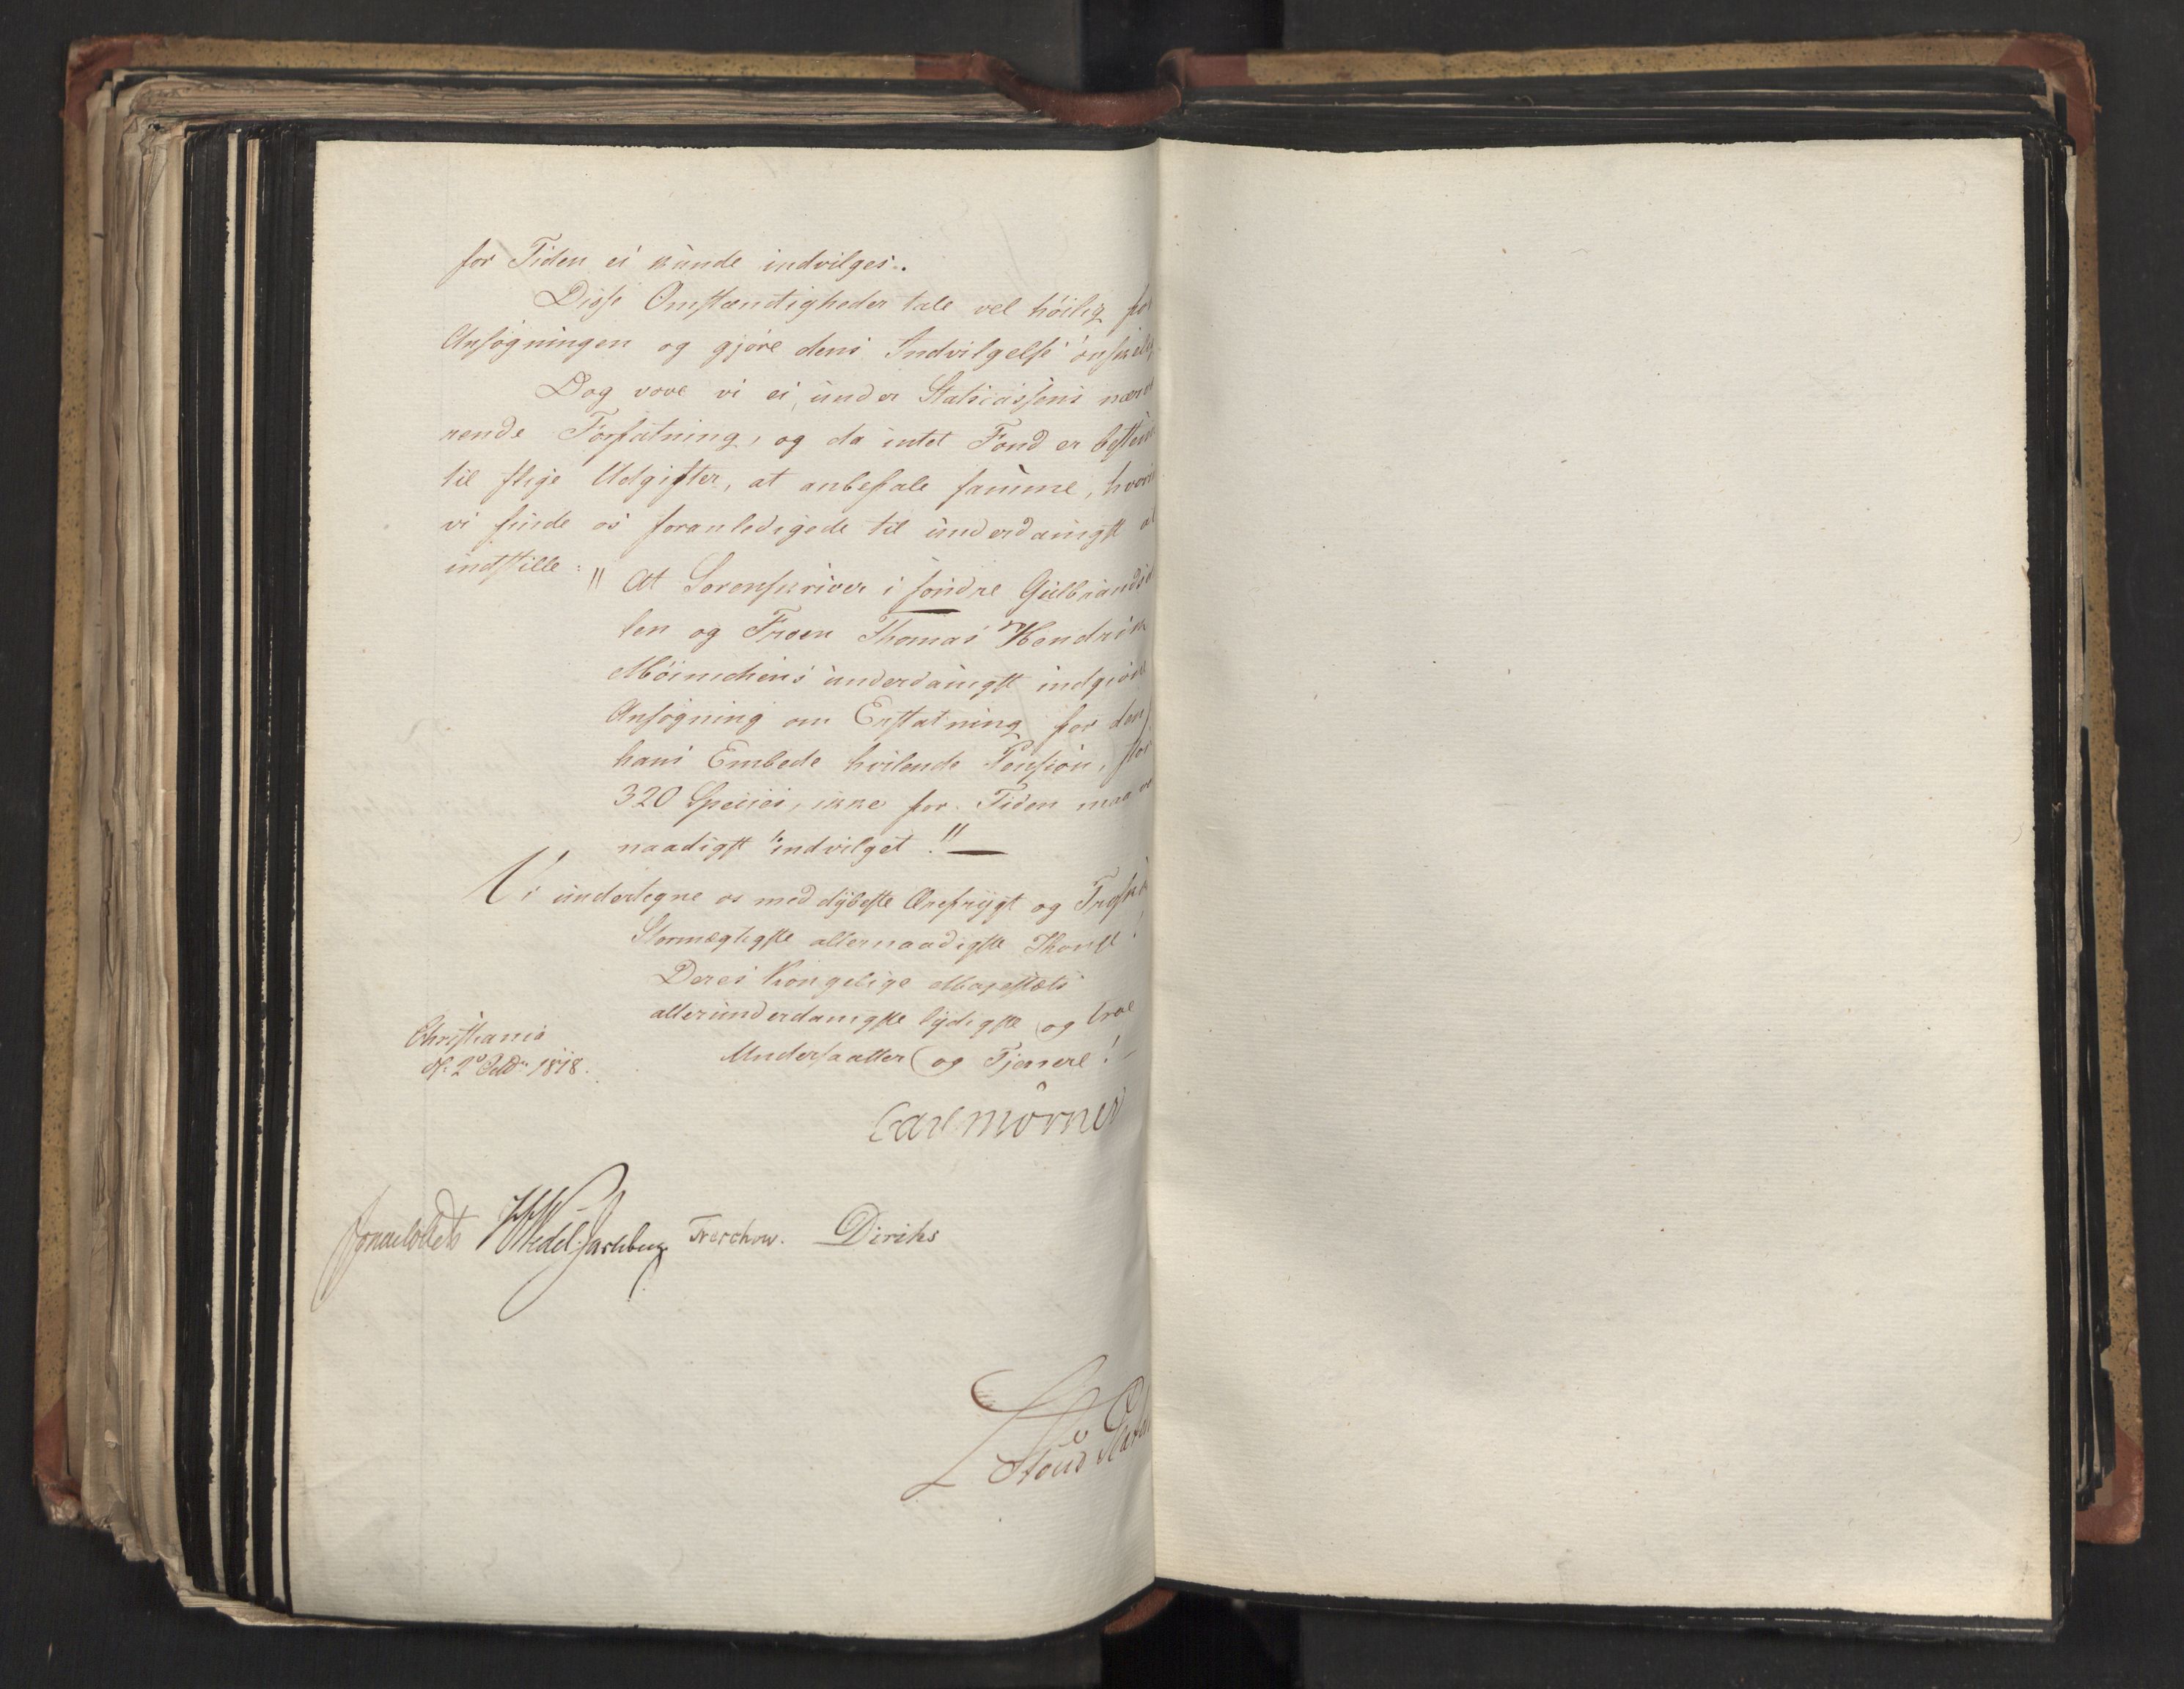 for Tiden ei kunde indvilges.
Disse Omstændigheder tale vel höilig for
Ansögningen og gjöre dens Indvilgelse önskelig
Dog vove vi ei, under Statscassens nærvæ
rende Forfatning, og da intet Fond er bestemt
til slige Udgifter, at anbefale samme, hvorfor
vi finde os foranledigede til underdanigst at
indstille:
" At Sorenskriver i söndre Gulbrandsda
len og Froen Thomas Hendrik
Möinichens underdanigst indgivne
Ansögning om Erstatning for den
hans Embede hvilende Pension, stor
320 Species, ikke for Tiden maa vor
naadigst indvilget!" —
Vi undertegne os med dybeste Ærefrygt og Troskab
Stormægtigste allernaadigste Konge!
Deres Kongelige Majestæts
allerunderdanigste lydigste og troe
Undersaatter og Tjenere!
Christiania
d. 2 Octbr 1818.
Carl Mörner
Sommerfeldt HWedel-Jarlsberg Treschow. Diriks